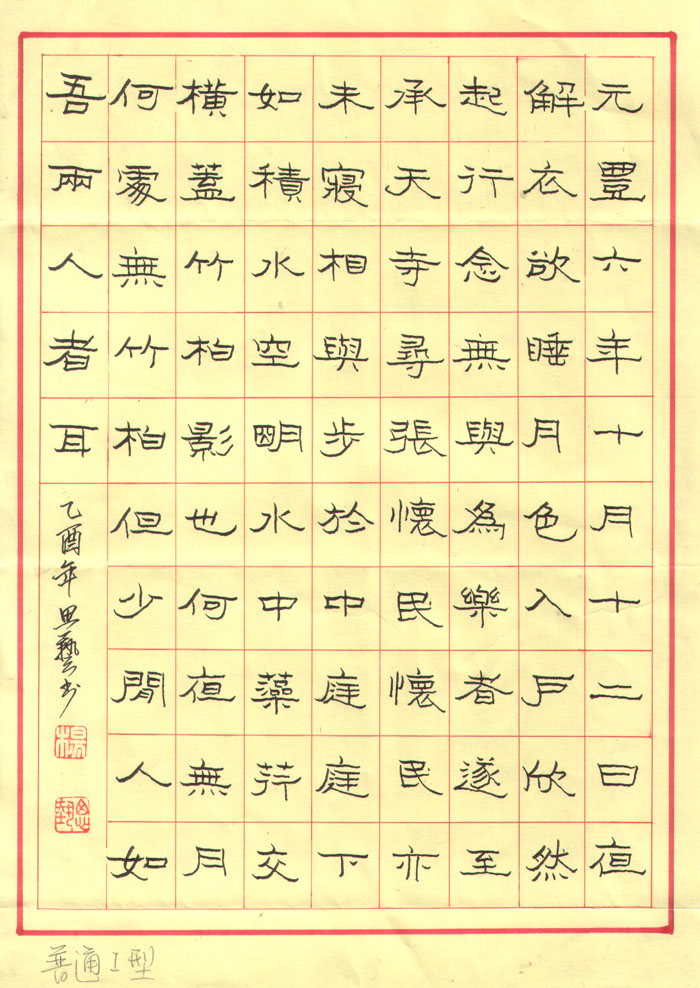 元豊六年十月十二日夜
解衣欲睡月色入戶欣然
起行念無與為樂者遂至
承天寺尋張懷民懷民亦
未寢相與步於中庭庭下
如積水空明水中藻荇交
橫蓋竹柏影也何夜無月
何處無竹柏但少閒人如
吾兩人者耳
乙酉年思藝书
楊
普通I型